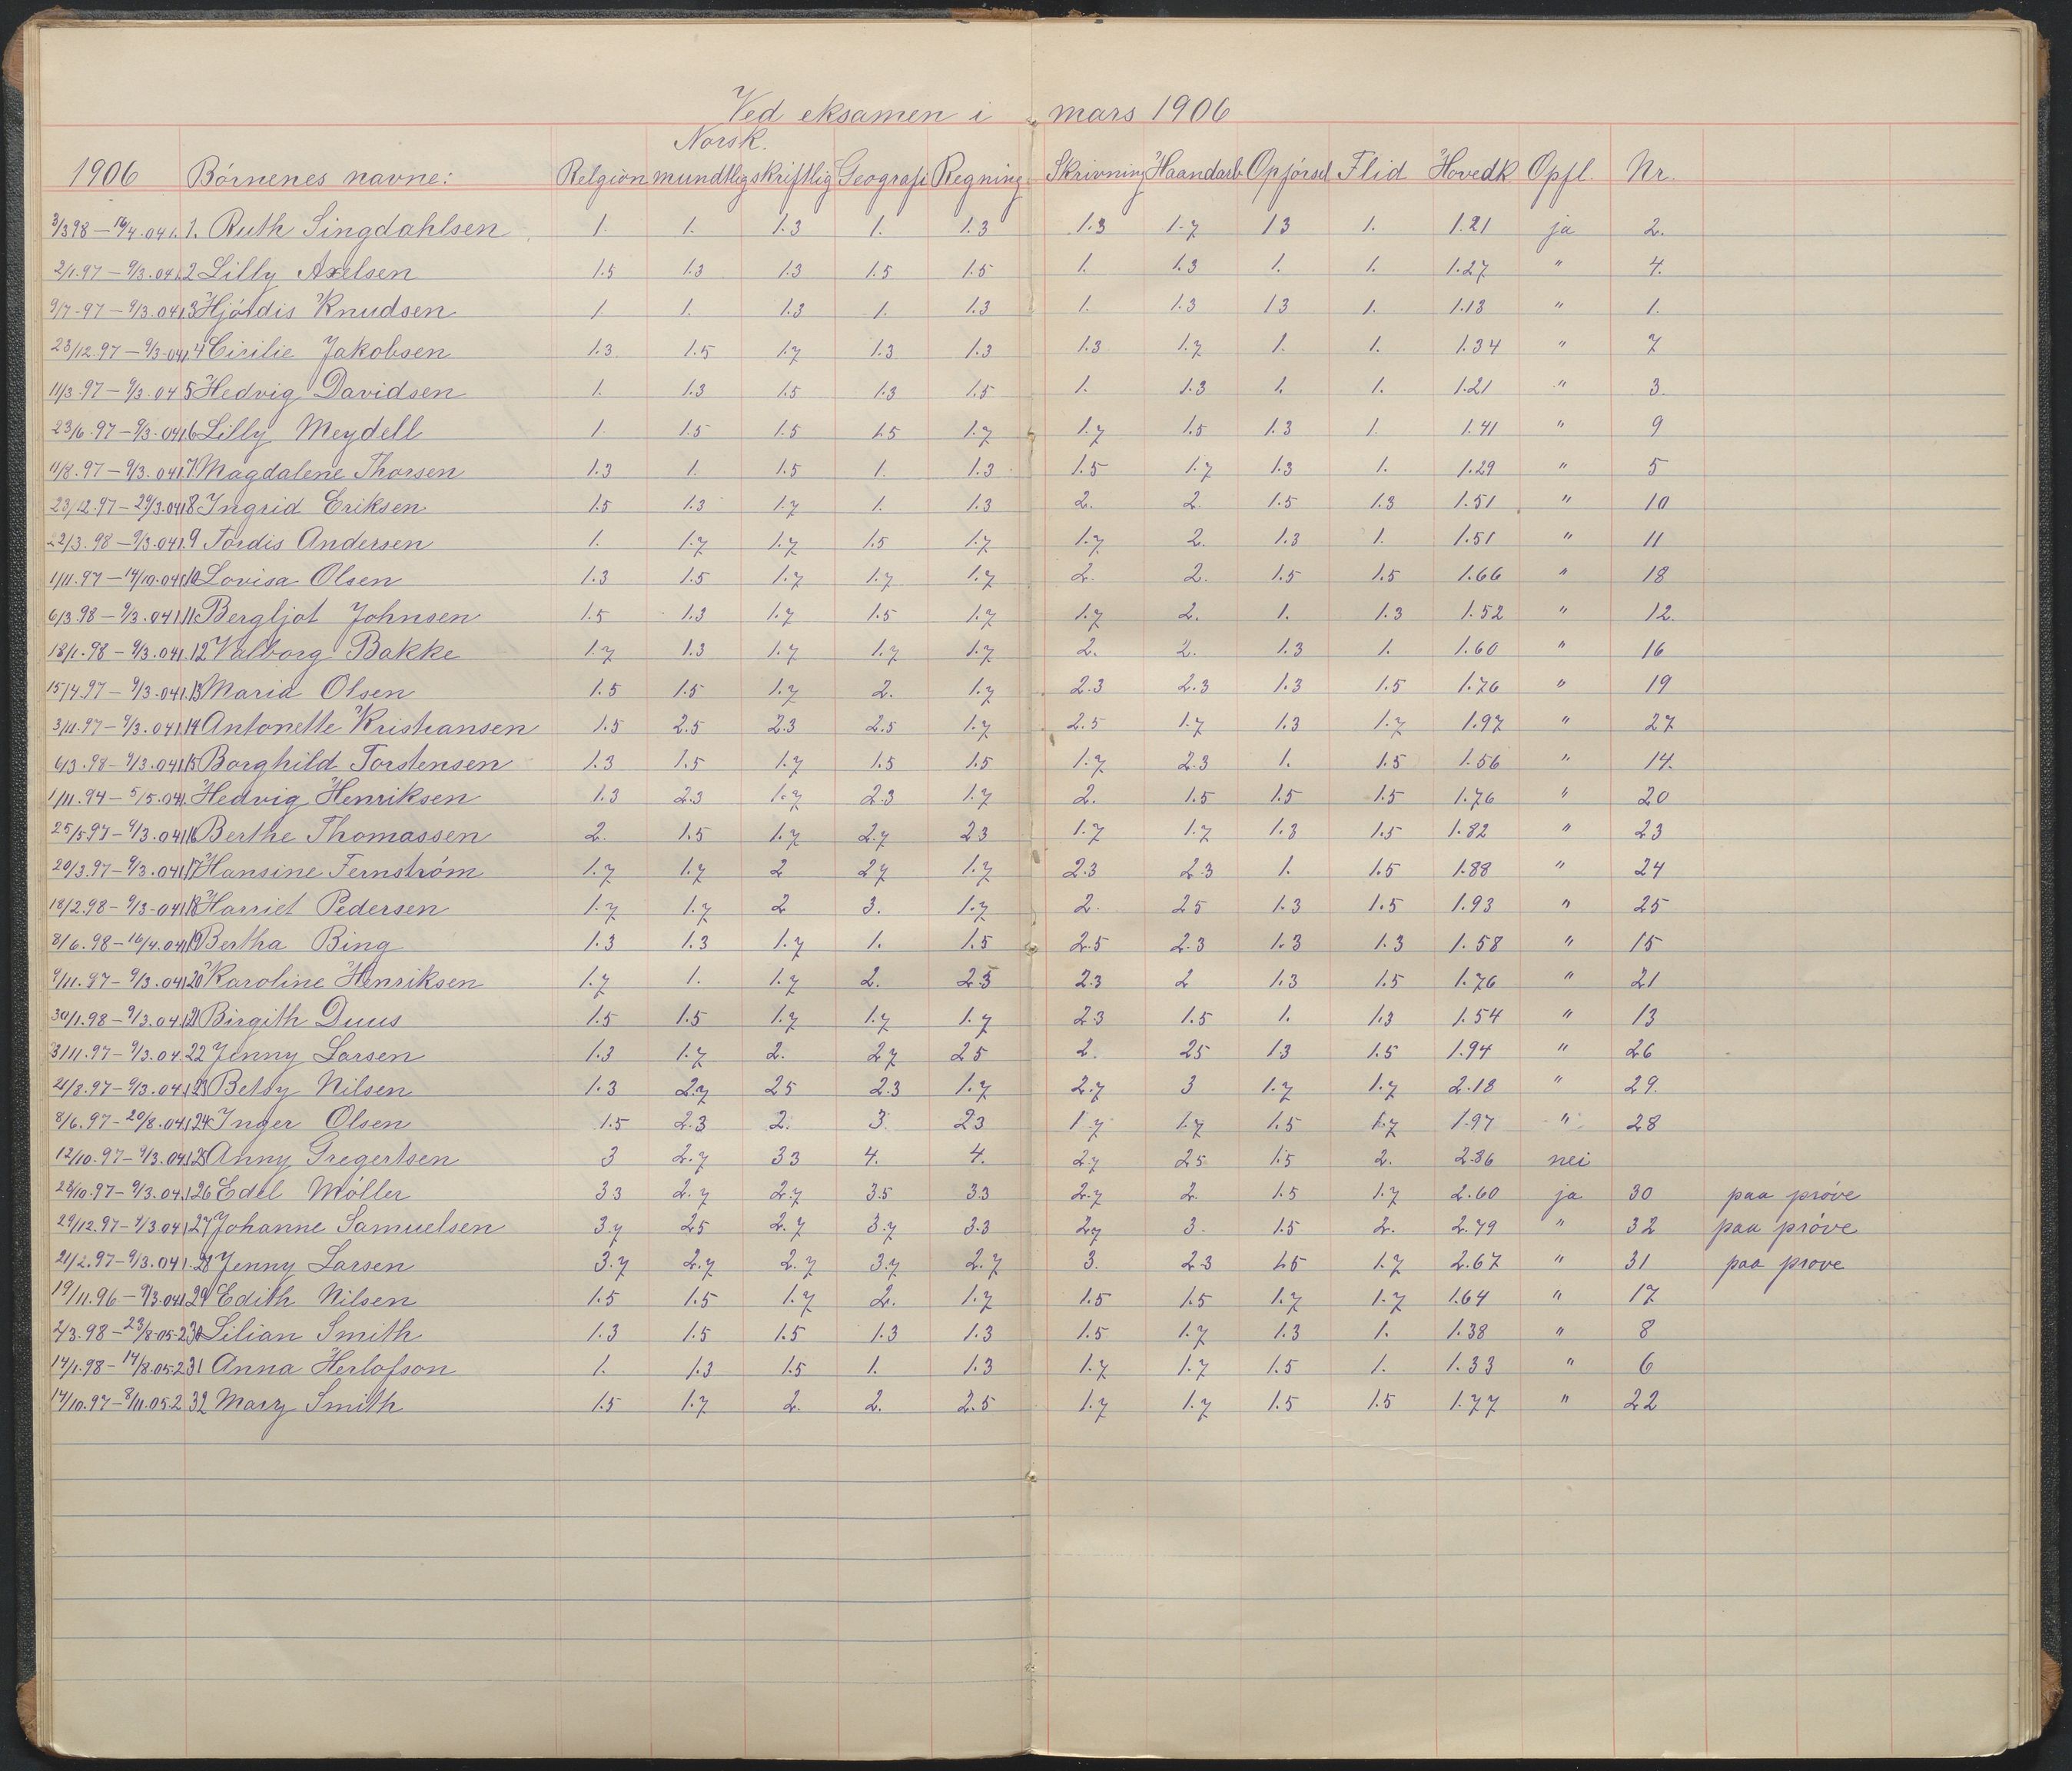 Ved eksamen i mars 1906
Norsk.
1906 Börnenes navne: Relgion mundtlig skriftlig Geografi Regning Skrivning Haandarb Opförsel Flid Hovedk Opfl. Nr.
3/3 98 – 16/4.04 1. 1. Ruth Singdahlsen 1. 1. 1.3 1. 1.3 1.3 1.7 13 1. 1.21 ja 2.
2/1.97 – 9/3.04 1. 2 Lilly Axelsen 1.5 1.3 1.3 1.5 1.5 1. 1.3 1. 1. 1.27 " 4.
9/7.97 – 9/3.04 1. 3 Hjördis Knudsen 1 1. 1.3 1. 1.3 1. 1.3 13 1. 1.13 " 1.
23/12.97 – 9/3.04 1. 4 Cicilie Jakobsen 1.3 1.5 1.7 1.3 1.3 1.3 1.7 1. 1. 1.34 " 7
11/3.97 – 9/3.04 5 Hedvig Davidsen 1. 1.3 1.5 1.3 1.5 1. 1.3 1. 1. 1.21 " 3.
23/6.97 – 9/3.04 1. 6 Lilly Meydell 1. 1.5 1.5 1.5 1.7 1.7 1.5 1.3 1. 1.41 " 9
11/8.97 – 9/3.04 1. 7. Magdalene Thorsen 1.3 1. 1.5 1. 1.3 1.5 1.7 1.3 1. 1.29 " 5
23/12.97 – 29/3.04 1. 8 Ingrid Eriksen 1.5 1.3 1.7 1. 1.3 2. 2. 1.5 1.3 1.51 " 10
22/3.98 – 9/3.04 1. 9 Tordis Andersen 1. 1.7 1.7 1.5 1.7 1.7 2. 1.3 1. 1.51 " 11
1/11.97 – 14/10.04 1. 10 Lovisa Olsen 1.3 1.5 1.7 1.7 1.7 2. 2. 1.5 1.5 1.66 " 18
6/3.98 – 9/3.04 1. 11. Bergljot Johnsen 1.5 1.3 1.7 1.5 1.7 1.7 2. 1. 1.3 1.52 " 12.
18/1.98 – 9/3.04 1. 12 Valborg Bakke 1.7 1.3 1.7 1.7 1.7 2. 2. 1.3 1. 1.60 " 16
15/4.97 – 9/3.04 1. 13 Maria Olsen 1.5 1.5 1.7 2. 1.7 2.3 2.3 1.3 1.5 1.76 " 19
3/11.97 – 9/3.04 1. 14 Antonette Kristiansen 1.5 2.5 2.3 2.5 1.7 2.5 1.7 1.3 1.7 1.97 " 27
6/3.98 – 9/3.04 1. 15 Borghild Torstensen 1.3 1.5 1.7 1.5 1.5 1.7 2.3 1. 1.5 1.56 " 14.
1/11.94 – 5/5.04 1. Hedvig Henriksen 1.3 2.3 1.7 2.3 1.7 2. 1.5 1.5 1.5 1.76 " 20
25/5.97 – 9/3.04 1. 16 Berthe Thomassen 2. 1.5 1.7 2.7 23 1.7 1.7 1.3 1.5 1.82 " 23
20/3.97 – 9/3.04 1. 17 Hansine Fernström 1.7 1.7 2 27 1.7 2.3 2.3 1. 1.5 1.88 " 24
18/2.98 – 9/3.04 1. 18 Harriet Pedersen 1.7 1.7 2 3. 1.7 2. 25 1.3 1.5 1.93 " 25
8/6.98 – 16/4.04 1. 19 Bertha Bing 1.3 1.3 1.7 1. 1.5 2.5 2.3 1.3 1.3 1.58 " 15
9/11.97 – 9/3.04 1. 20 Karoline Henriksen 1.7 1. 1.7 2. 2.5 2.3 2 1.3 1.5 1.76 " 21
30/1.98 – 9/3.04 1. 21 Birgith Duus 1.5 1.5 1.7 1.7 1.7 2.3 1.5 1. 1.3 1.54 " 13
3/11.97 – 9/3.04. 22 Jenny Larsen 1.3 1.7 2. 27 25 2. 25 13 1.5 1.94 " 26
21/8.97 – 9/3.04 1. 23 Betsy Nilsen 1.3 2.7 25 2.3 1.7 2.7 3 1.7 1.7 2.18 " 29.
8/6.97 – 20/8.04 1. 24 Inger Olsen 1.5 2.3 2. 3. 23 1.7 1.7 1.5 1.7 1.97 " 28
12/10.97 – 9/3.04 1. 25 Anny Gregertsen 3 2.7 33 4. 4. 27 25 1.5 2. 2.86 nei
23/10.97 – 9/3.04 1. 26 Edel Möller 33 2.7 2.7 3.5 3.3 2.7 2. 1.5 1.7 2.60 ja 30 paa pröve
29/12.97 – 9/3.04 1. 27 Johanne Samuelsen 3.7 25 2.7 3.7 3.3 27 3. 1.5 2. 2.79 " 32 paa pröve
21/2.97 – 9/3.04 1. 28 Jenny Larsen 3.7 2.7 2.7 3.7 2.7 3. 2.3 1.5 1.7 2.67 " 31 paa prove
19/11.96 – 9/3.04 1. 29 Edith Nilsen 1.5 1.5 1.7 2. 1.7 1.5 1.5 1.7 1.7 1.64 " 17
2/3.98 – 23/8.05.2 30 Lilian Smith 1.3 1.5 1.5 1.3 1.3 1.5 1.7 1.3 1. 1.38 " 8
14/1.98 – 14/8.05.2 31 Anna Herlofson 1. 1.3 1.5 1. 1.3 1.7 1.7 1.5 1. 1.33 " 6
14/10.97 – 8/11.05.2 32 Mary Smith 1.5 1.7 2. 2. 2.5 1.7 1.7 1.5 1.5 1.77 " 22